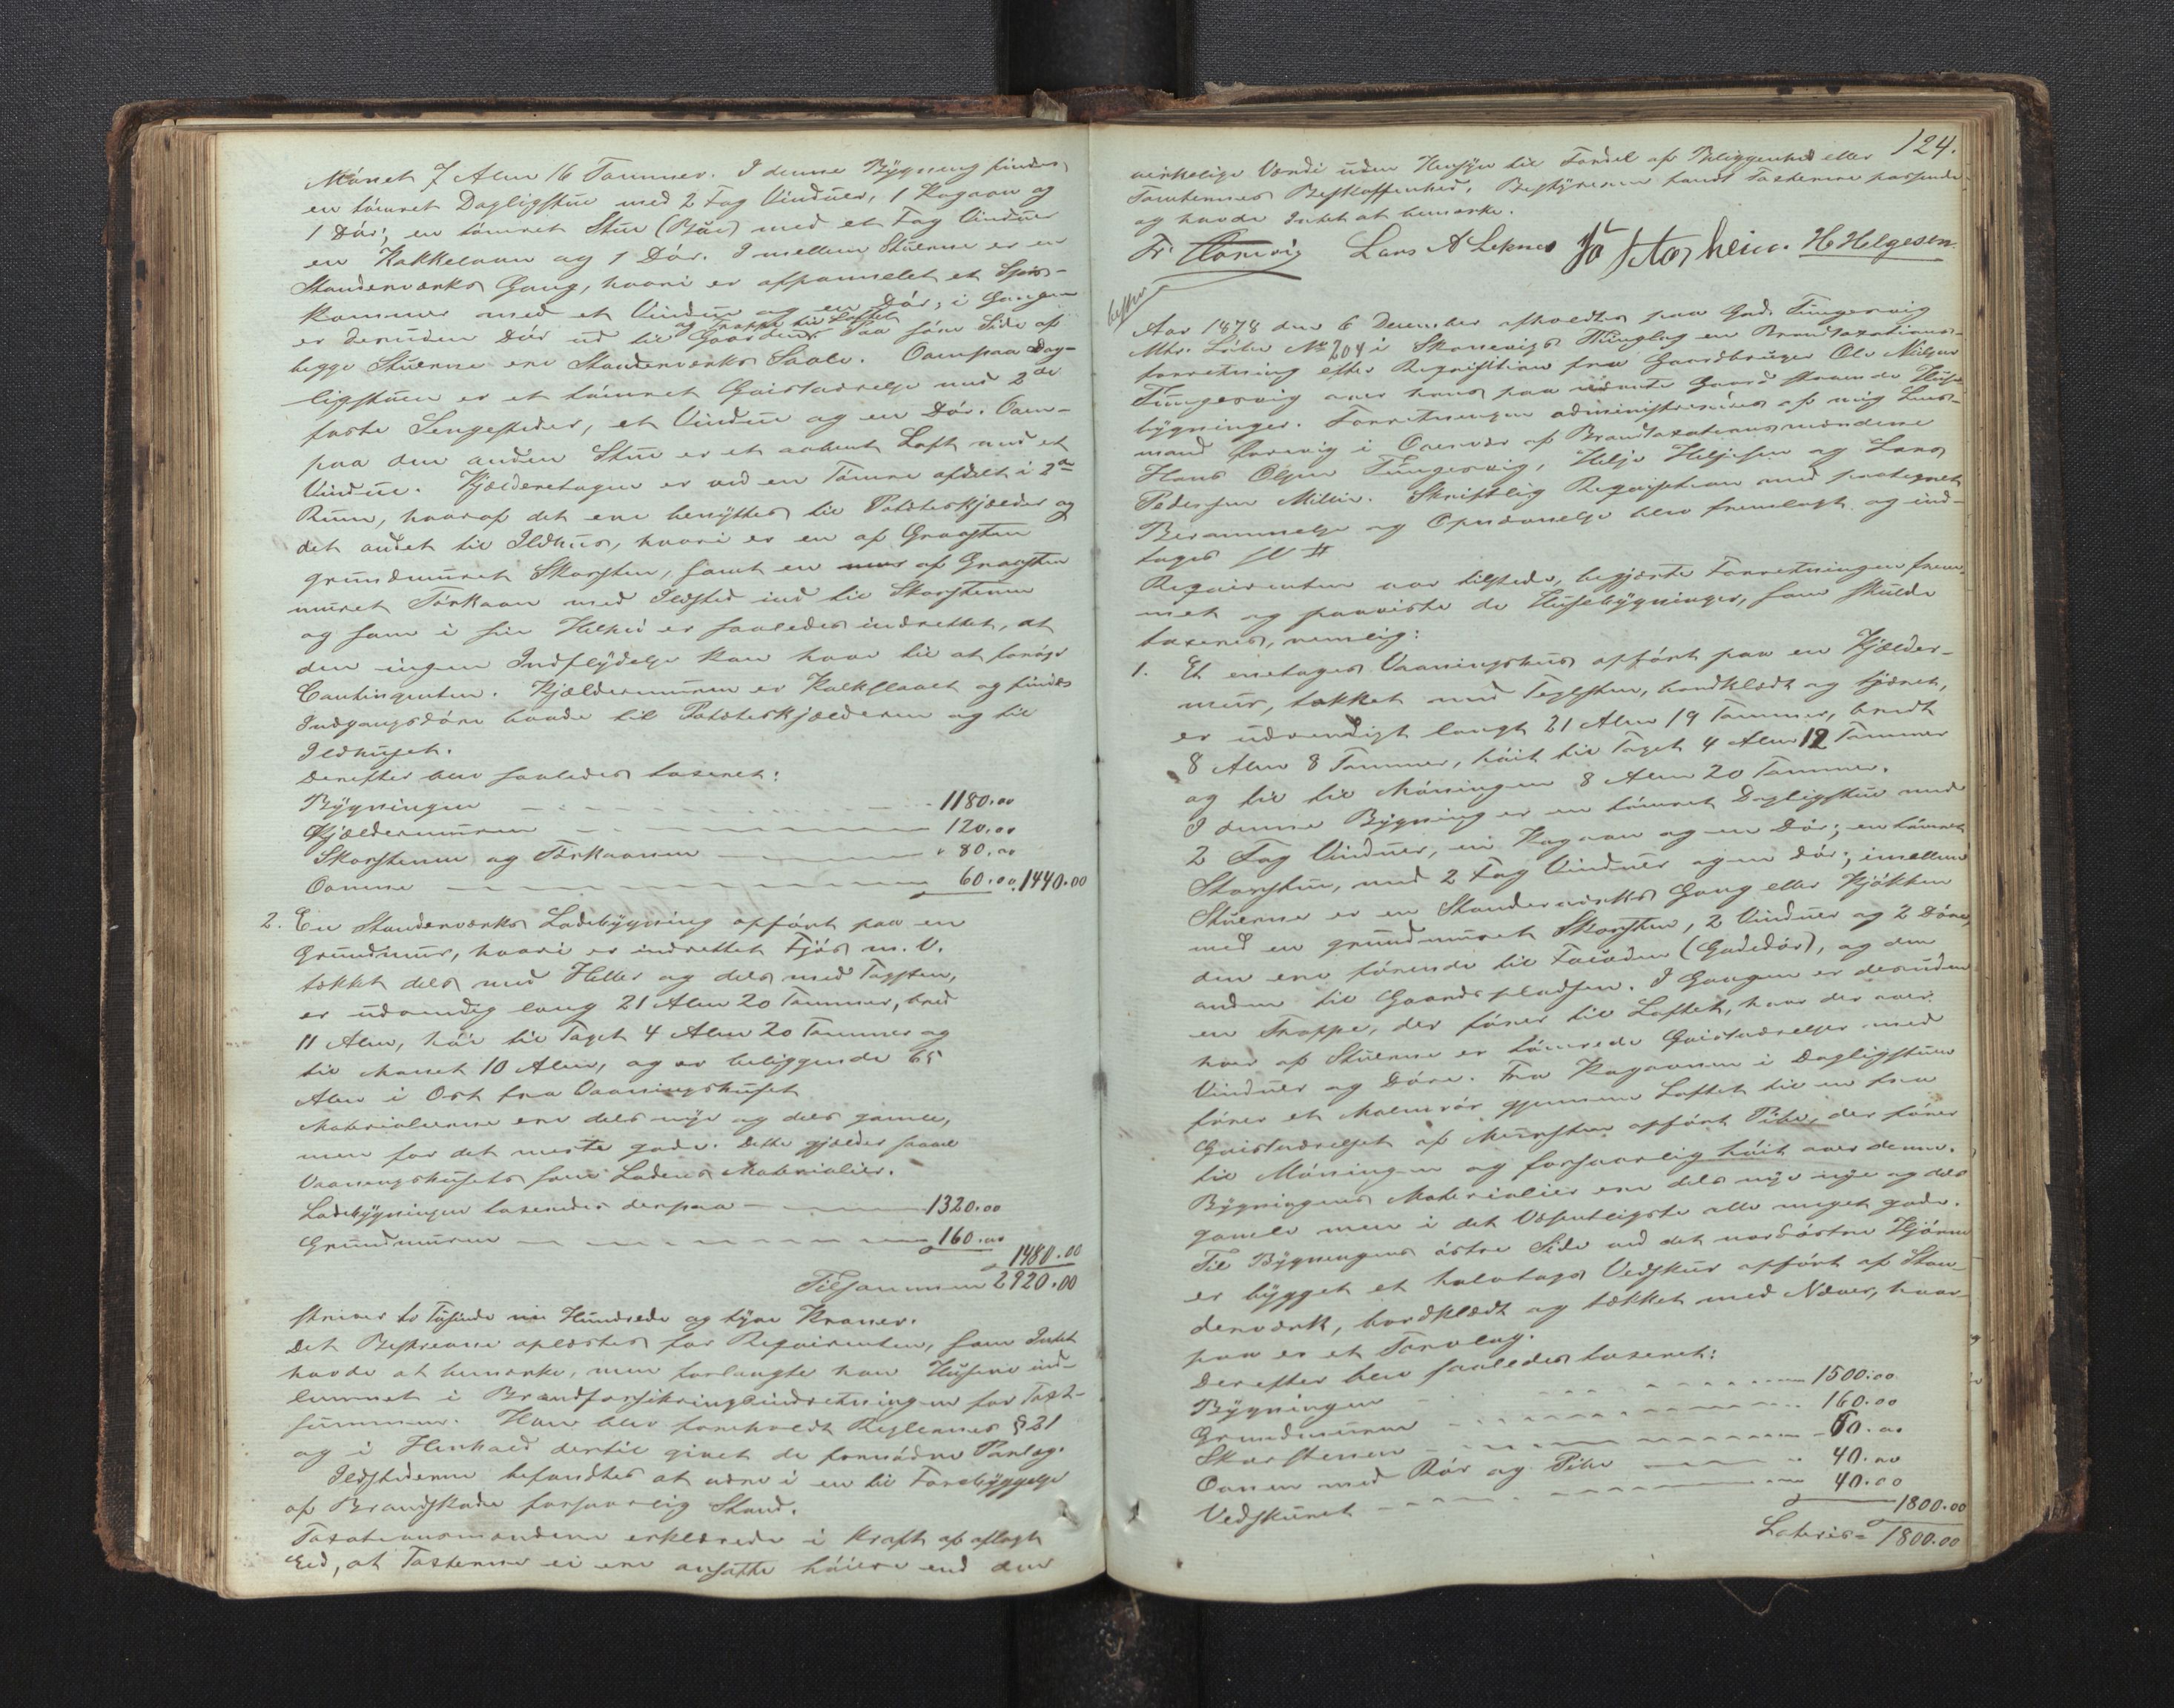 Mønet 7 Alen 16 Tommer. I denne Bygning findes
en tømret Dagligstue med 2 Fag Vinduer, 1 Kogovn og
1 Dør; en tømret Stue (Bue) med et Fag Vinduer
en Kakkelovn og 1 Dør. I mellem Stuerne er en
Standerværks Gang, hvori er afpannelet et Spis-
kammer med et Vindue og en Dør; i Gangen
er desuden Dør ud til Gaarden og Trappe til Loftet. Paa søre Side af
begge Stuerne ere Standerværks Svale. Oven paa Dag-
ligstuen er et tømret Gaistværelse med 2de
faste Sengesteder, et Vindue og en Dør. Oven-
paa den anden Stue er et aabent Loft med et
Vindue. Kjælderetagen er ved en Tømre afdelt i 2de
Rum, hvoraf det ene benyttes til Potæteskjælder og
det andet til Ildhus, hvori er en af Graasten
grundmuret Skorsten, samt en af Graasten
muret Tørkovn med Ildsted ind til Skorstenen
og som i sin Helhed er saaledes indrettet, at
den ingen Indflydelse kan have til at forøge
Contingenten. Kjældermuren er Kalkslaaet og findes
Indgangsdøre baade til Potæteskjælderen og til
Ildhuset.
Derefter blev saaledes taxeret:
Bygningen 1180.00
Kjældermuren 120.00
Skorstenen og Tørkovnen " 80.00
Ovnene 60.00 1440.00
2. En Standerværks Ladebygning opført paa en
Grundmur, hvori er indrettet Fjøs m. V.
tækket dels med Heller og dels med Tagsten,
er udvendig lang 21 Alen 20 Tommer, bred
11 Alen, høi til Taget 4 Alen 20 Tommer og
til Mønet 10 Alen, og er beliggende 65
Alen i Ost fra Vaaningshuset
Materialierne ere dels nye og dels gamle,
men for det meste gode. Dette gjælder saavel
Vaaningshusets som Ladens Materialier.
Ladebygningen taxeredes derpaa 1320.00
Grundmuren 160.00
1480.00
Tilsammen 2920.00
skriver to Tusinde ni Hundrede og tyve Kroner.
Det Beskrevne oplæstes for Reqvirenten, som Intet
havde at bemærke, men forlangte han Husene ind-
lemmet i Brandforsikringsindretningen for Taxt-
summen. Han blev foreholdt Reglernes § 21
og i Henhold dertil givet de fornødne Paalæg.
Ildstederne befandtes at være i en til Forebyggelse
af Brandskade forsvarlig Stand.
Taxationsmændene erklærede i Kraft af aflagt
Eed, at Taxterne ei ere ansatte høiere end den
124.
virkelige Værdi uden Hensyn til Fordel af Beliggenhed eller
Tomternes Beskaffenhed. Bestyreren fandt Taxterne passende
og havde Intet at bemærke.
Lars A Leknes H Helgesen
Aar 1878 den 6 December afholdtes paa Gd. Tungesvig
Mtr. Løbe No 204 i Skonevigs Thinglag en Brandtaxations-
forretning efter Reqvisition fra Gaardbruger Ole Nielsen
Tungesvig over hans paa nævnte Gaard staaende Huse-
bygninger. Forretningen administreredes af mig Lens-
mand i Overvær af Brandtaxationsmændene
Hans Olsen Tungesvig, Helje Heljesen og Lars
Pedersen Milje. Skriftlig Reqvisition med paategnet
Berammelse og Opnævnelse blev fremlagt og ind-
tages
Reqvirenten var tilstede, begjærte Forretningen frem-
met og paaviste de Husebygninger, som skulde
taxeres, nemlig:
1. Et enetages Vaaningshus opført paa en Kjælder-
mur, tækket med Teglsten, bordklædt og tjæret,
er udvendigt langt 21 Alen 19 Tommer, bredt
8 Alen 8 Tommer, høit til Taget 4 Alen 12 Tommer
og til til Møningen 8 Alen 20 Tommer.
I denne Bygning er en tømret Dagligstue med
2 Fag Vinduer, en Kogovn og en Dør; en tømret
Storstue, med 2 Fag Vinduer og en Dør; imellem
Stuerne er en Standerværks Gang eller Kjøkken
med en grundmuret Skorsten, 2 Vinduer og 2 Døre,
den ene førende til Facaden (Gadedør), og den
anden til Gaardspladsen. I Gangen er desuden
en Trappe, der fører til Loftet, hvor der over
hver af Stuerne er tømrede Gaistværelser med
Vinduer og Døre. Fra Kogovnen i Dagligstuen
fører et Malmrør gjennem Loftet til en fra
Gaistværelset af Mursten opført Pibe, der fører
til Møningen og forsvarlig høit over denne.
Bygningens Materialier ere dels nye nye og dels
gamle men i det Væsentligste alle meget gode.
Til Bygningens østre Side ved det nordøstre Hjørne
er bygget et halvtags Vedskur opført af Stan-
derværk, bordklædt og tækket med Næver, hvor-
paa er et Torvlag.
Derefter blev saaledes taxeret:
Bygningen 1500.00
Grundmuren 160.00
Skorstenen 60.00
Ovnen med Rør og Pibe 40.00
Vedskuret 40.00
1800.00
Lateris 1800.00